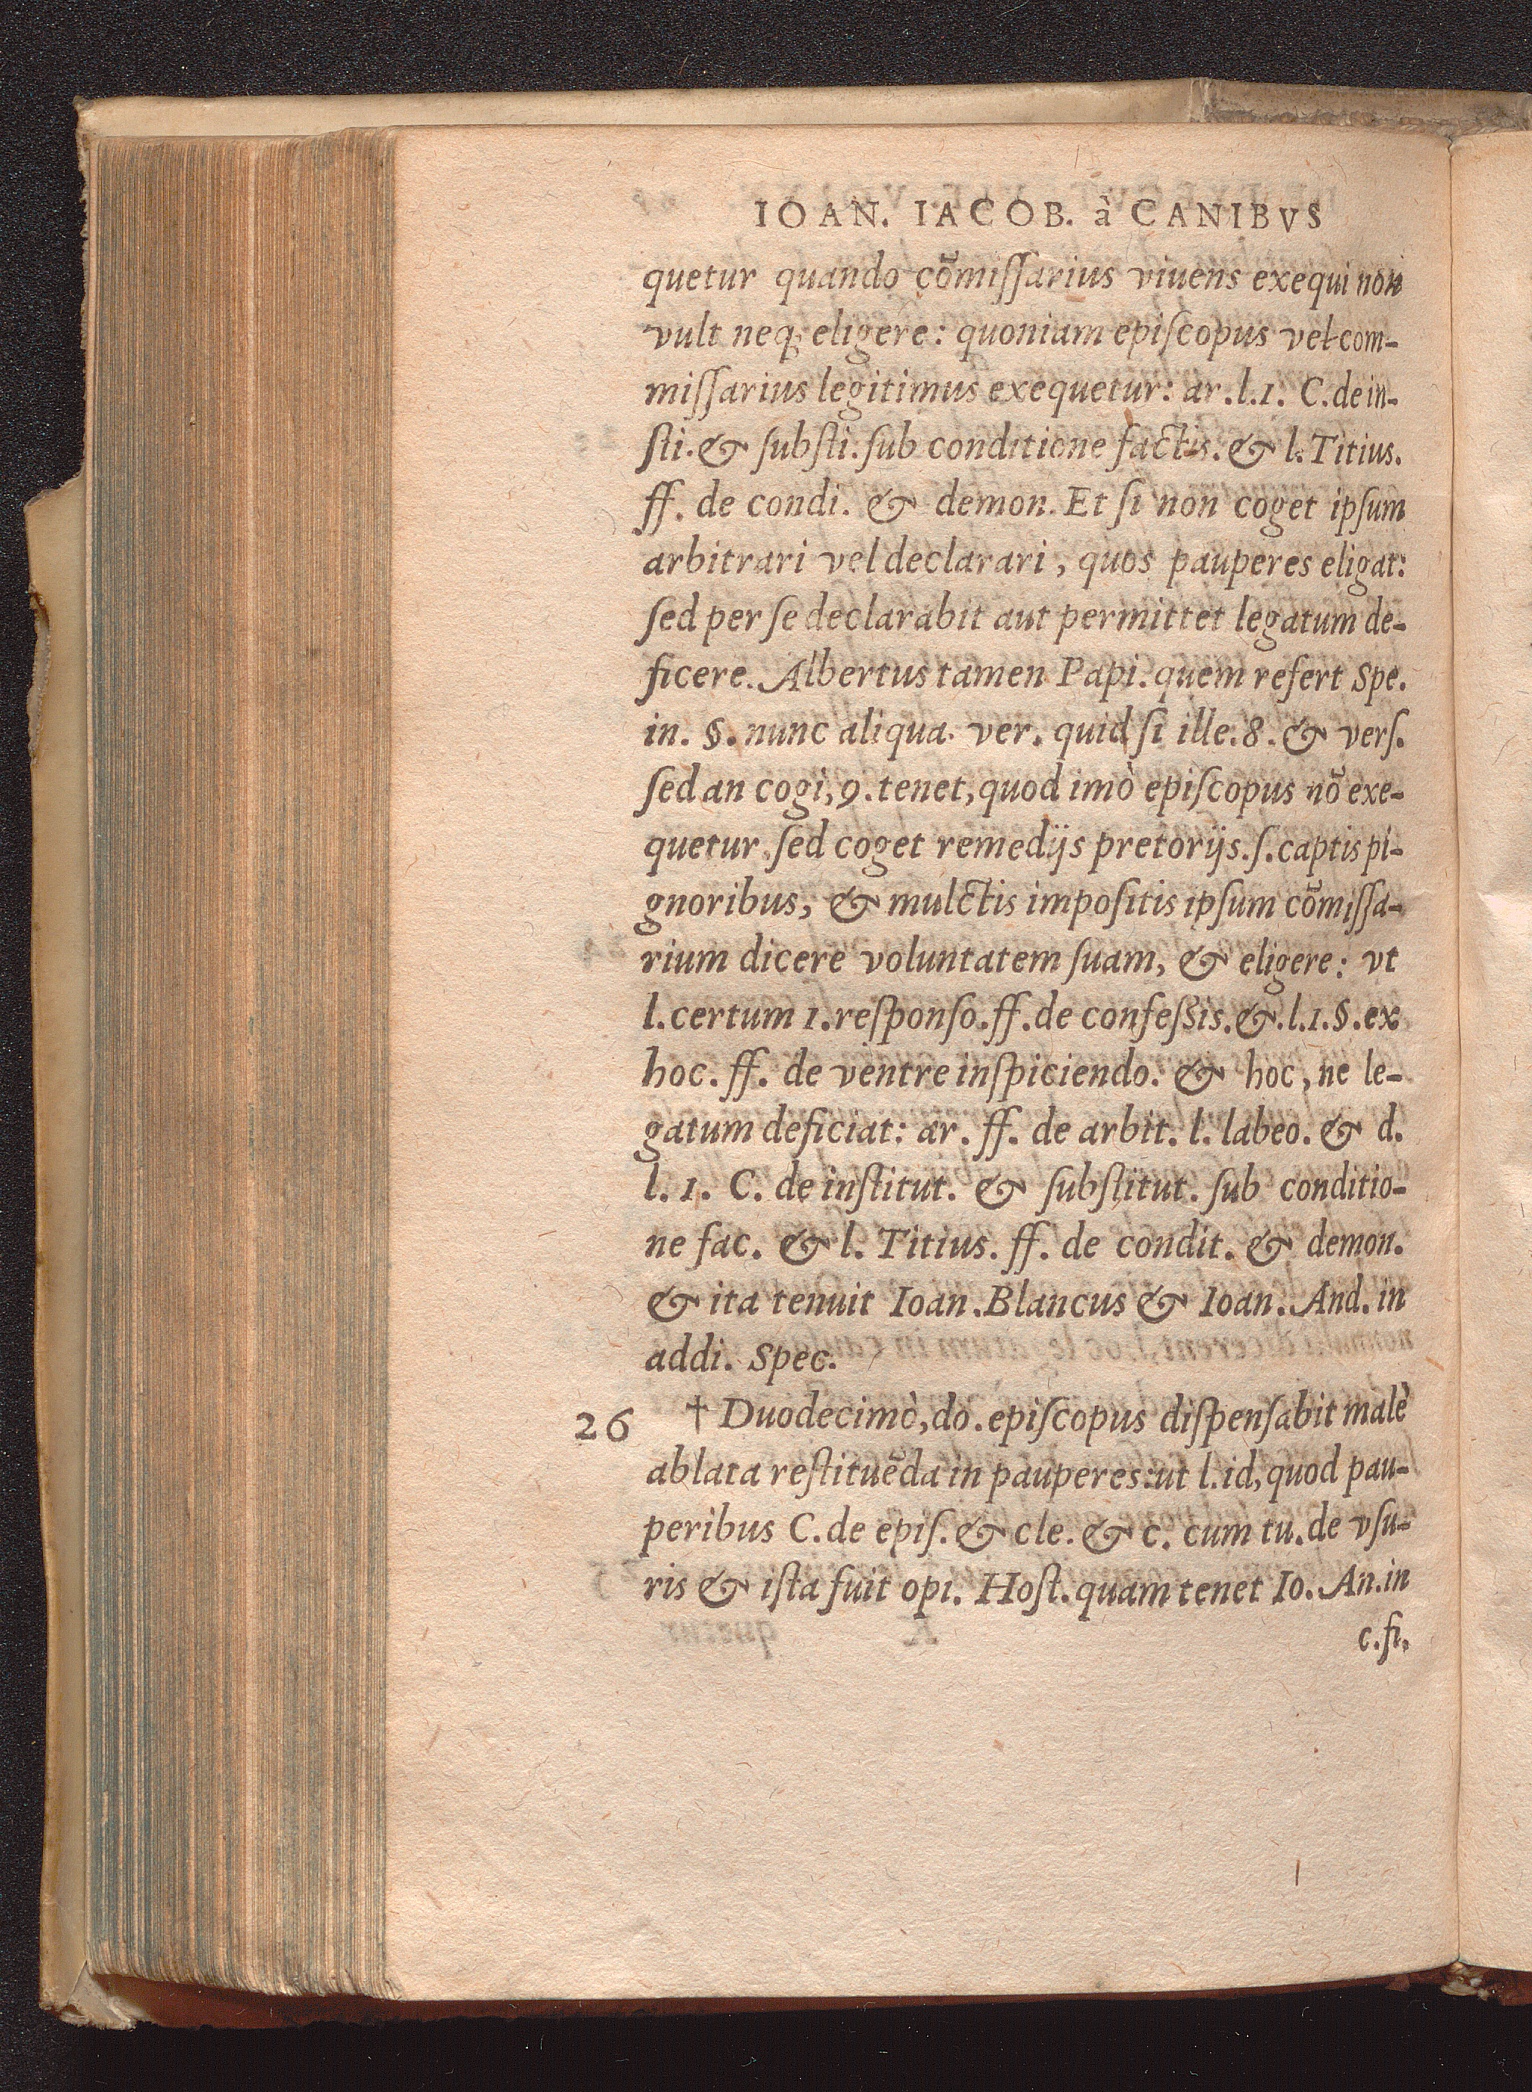 IOAN. IACOB. à CANIBVS
quetur quando cōmiſſarius viuens exequi non
vult neq; eligere: quoniam epiſcopus vel com-
miſſarius legitimus exequetur: ar. l. 1. C. de in-
ſti. & ſubſti. ſub conditione factis. & l. Titius.
ff. de condi. & demon. Et ſi non coget ipſum
arbitrari vel declarari, quos pauperes eligat:
ſed per ſe declarabit aut permittet legatum de-
ficere. Albertus tamen Papi. quem refert Spe.
in. §. nunc aliqua. ver. quid ſi ille. 8. & verſ.
ſed an cogi, 9. tenet, quod imò epiſcopus nō exe-
quetur ſed coget remedijs pretorijs. ſ. captis pi-
gnoribus, & mulctis impoſitis ipſum cōmiſſa-
rium dicere voluntatem ſuam, & eligere: vt
l. certum 1. reſponſo. ff. de confeſsis. &. l. 1. §. ex
hoc. ff. de ventre inſpiciendo. & hoc, ne le-
gatum deficiat: ar. ff. de arbit. l. labeo. & d.
l. 1. C. de inſtitut. & ſubſtitut. ſub conditio-
ne fac. & l. Titius. ff. de condit. & demon.
& ita tenuit Ioan. Blancus & Ioan. And. in
addi. Spec.
26 † Duodecimò, do. epiſcopus diſpenſabit malè
ablata reſtituēda in pauperes: ut l. id, quod pau-
peribus C. de epiſ. & cle. & c. cum tu. de vſu-
ris & iſta fuit opi. Hoſt. quam tenet Io. An. in
c. fi.